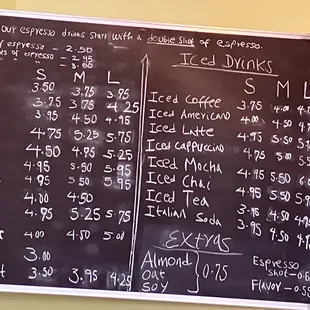 our espresso drinks start with a double shot of espresso.
of espresso - 2.50
of espresso - 2.95
- 3.00
S M L
3.50 3.75 3.95
3.75 3.95 4.25
3.95 4.50 4.95
4.75 5.25 5.75
4.50 4.95 5.25
4.95 5.50 5.95
4.95 5.50 5.95
4.00 4.50
4.75 5.25 5.75
4.00 4.50 5.00
3.00
3.50 3.95 4.25
Iced Drinks
S M L
Iced Coffee 3.75 4.00
Iced Americano 4.00 4.50
Iced Latte 4.75 5.50
Iced Cappuccino 4.75 5.00
Iced Mocha 4.95 5.50
Iced Chai 4.95 5.50
Iced Tea 3.95 4.50
Italian Soda 3.95 4.50
Extras
Almond
Oat
Soy
0.75
Espresso
shot
Flavor